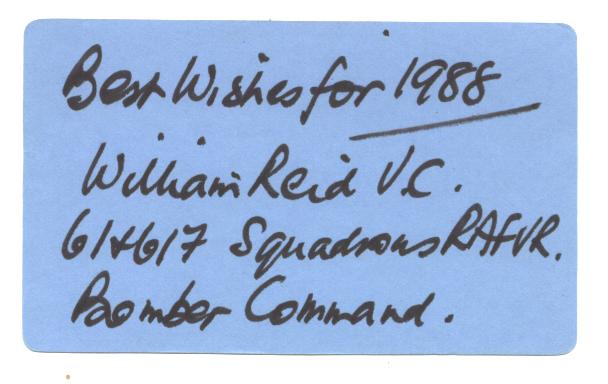 Best Wishes for 1988
William Reid V.C.
61+617 Squadrons RAFVR.
Bomber Command.